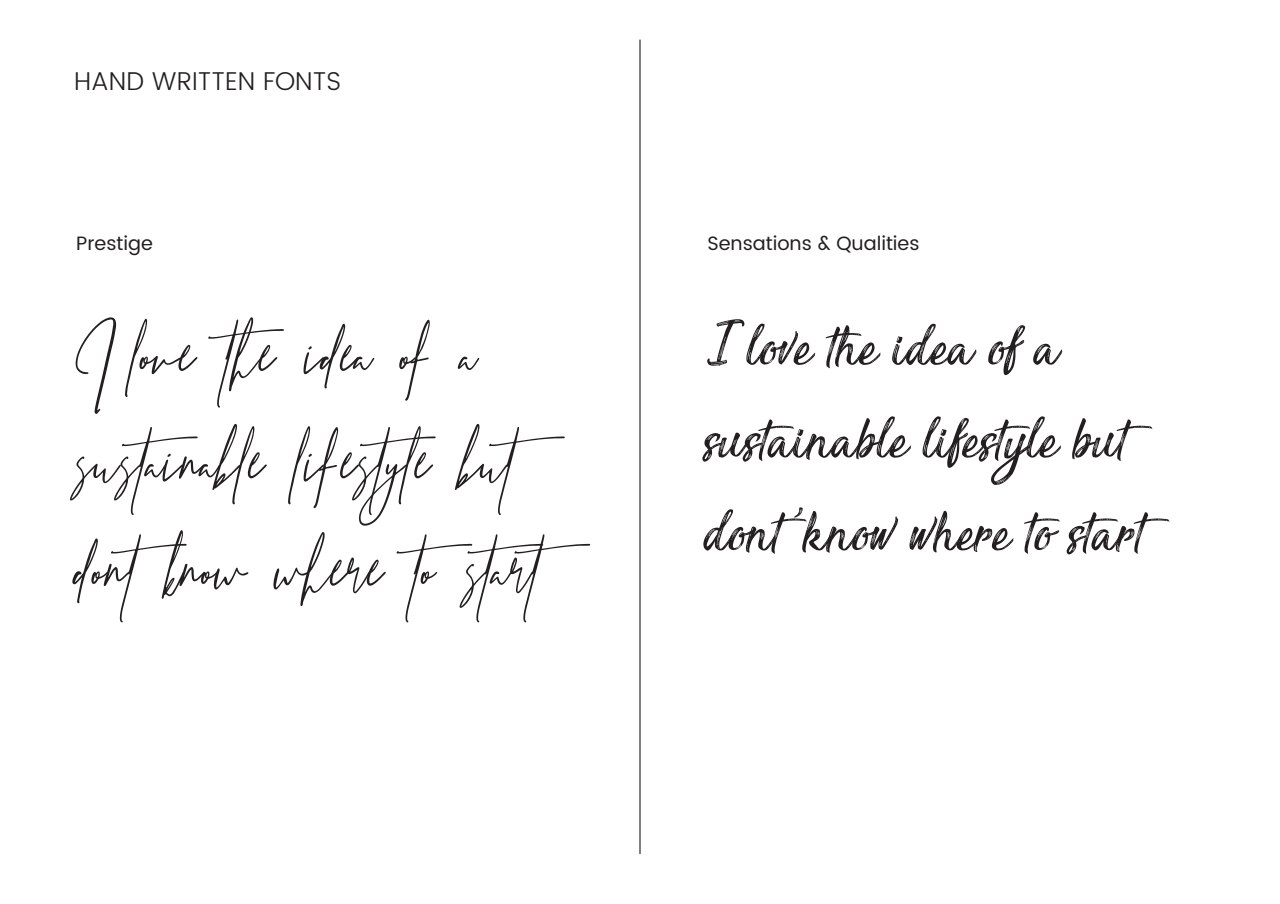 HAND WRITTEN FONTS
Prestige
I love the idea of a
sustainable lifestyle but
dont know where to start
Sensations & Qualities
I love the idea of a
sustainable lifestyle but
dont' know where to start